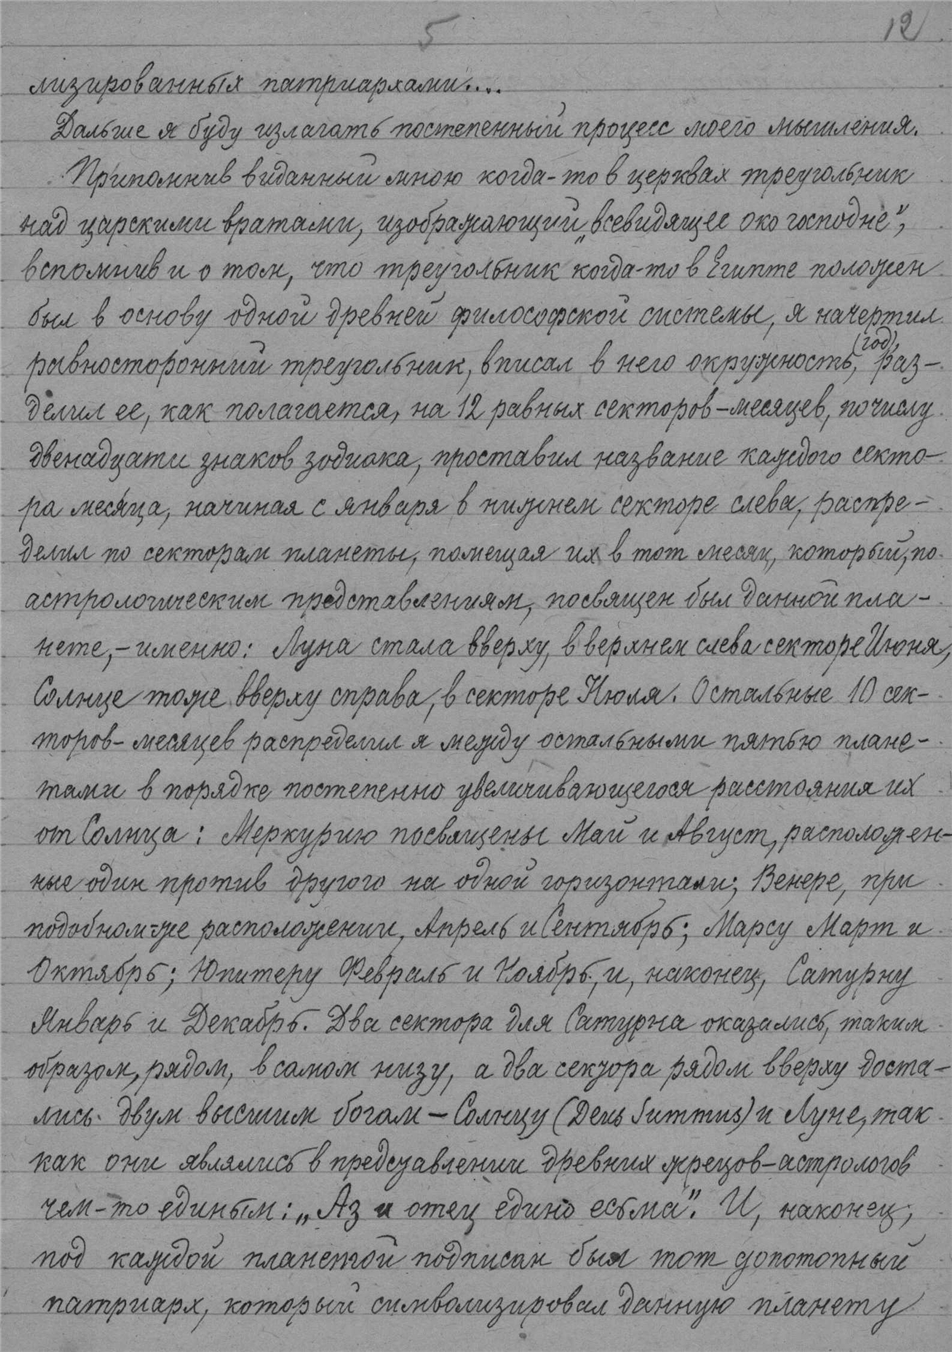 5 12
лизированных патриархами....
Дальше я буду излагать постепенный процесс моего мышления.
Припомнив виданный мною когда-то в церквах треугольник
над царскими вратами, изображающий „всевидящее око господне",
вспомнив и о том, что треугольник когда-то в Египте положен
был в основу одной древней философской системы, я начертил
равносторонний треугольник, вписал в него окружность (год), раз-
делил ее, как полагается, на 12 равных секторов-месяцев, по числу
двенадцати знаков зодиака, проставил название каждого секто-
ра месяца, начиная с января в нижнем секторе слева, распре-
делил по секторам планеты, помещая их в тот месяц, который, по
астрологическим представлениям, посвящен был данной пла-
нете, - именно: Луна стала вверху, в верхнем слева секторе Июня,
Солнце тоже вверху справа, в секторе Июля. Остальные 10 сек-
торов-месяцев распределил я между остальными пятью плане-
тами в порядке постепенно увеличивающегося расстояния их
от Солнца: Меркурию посвящены Май и Август, расположен-
ные один против другого на одной горизонтали; Венере, при
подобном-же расположении, Апрель и Сентябрь; Марсу Март и
Октябрь; Юпитеру Февраль и Ноябрь, и, наконец, Сатурну
Январь и Декабрь. Два сектора для Сатурна оказались, таким
образом, рядом, в самом низу, а два сектора рядом вверху доста-
лись двум высшим богам - Солнцу (Deus Summus) и Луне, так
как они являлись в представлении древних жрецов-астрологов
чем-то единым: „Аз и отец едино есьма". И, наконец,
под каждой планетой подписан был тот допотопный
патриарх, который символизировал данную планету